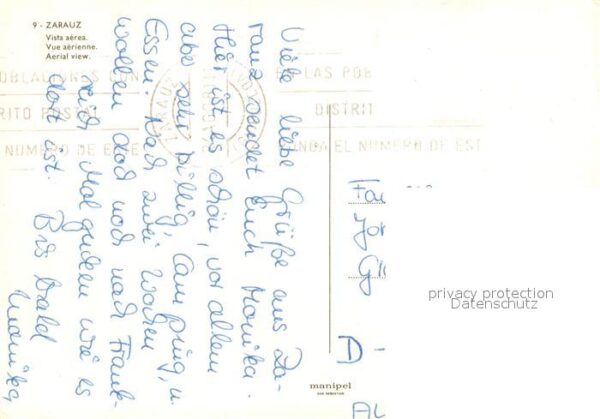 9 - ZARAUZ
Vista aérea.
Vue aérienne.
Aerial view.
Viele liebe Grüße aus Za-
rauz sendet Euch Monika.
Hier ist es schön, vor allem
aber sehr billig, Camping, u.
Essen. Nach zwei Wochen
wollen doch noch nach Frank-
reich. Mal gucken wie es
dort ist. Bis bald
Monika
OBLACIONES CON
RITO POSTAL
NUMERO DE ESTE
ZARAUZ
LAS POB
DISTRIT
EL NUMERO DE EST
Fa
Jö
Gö
A
AL
privacy protection
Datenschutz
manipel
SAN SEBASTIAN